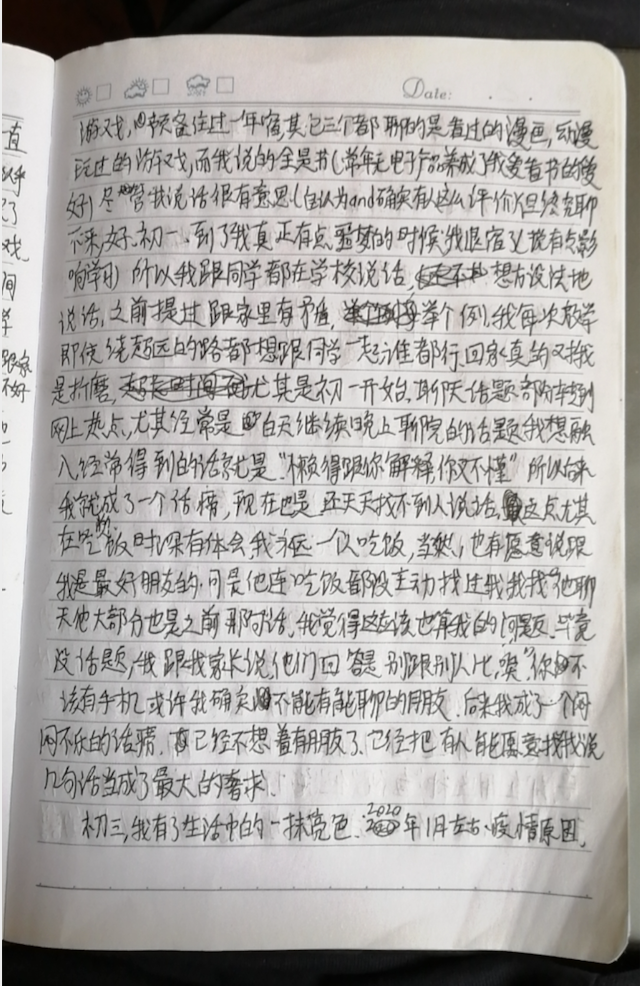 Date:
游戏,预备住过一年宿,其它三个都聊的是看过的漫画,动漫
玩过的游戏,而我说的全是书(常年无电子产品养成了我爱看书的
好)尽管我说话很有意思(自认为and确实有人这么评价)但终究聊
不来,好,初一,到了我真正有点的时候,我退宿了,说有点影
响学习)所以我跟同学都在学校说话,想方设法地
说话,之前提过跟家里有矛盾,举个例,我每次放学
即使绕超远的路都想跟同学一起,谁都行,回家真的对我
是折磨,尤其是初一开始,聊天话题都转到
网上热点,尤其经常是白天继续晚上聊完的话题,我想融
入,经常得到的话就是"懒得跟你解释你又不懂"所以后来
我就成了一个话痨,现在也是,还天天找不到人说话,这点尤其
在吃饭时深有体会,我永远一个人吃饭,当然,也有愿意说跟
我是最好朋友的,可是他连吃饭都没主动找过我,我找他聊
天他大部分也是之前那句话,我觉得这应该也算我的问题,毕竟
没话题,我跟我家长说,他们回答是别跟别人比,唉"你不
该有手机"或许我确定不能有能聊的朋友,后来我成了一个闷
闷不乐的话痨,已经不想着有朋友了,已经把有人能愿意找我说
几句话当成了最大的奢求.
初三,我有了生活中的一抹亮色.2020年1月左右,疫情原因,
直
了
戏
间
学
跟家
不好